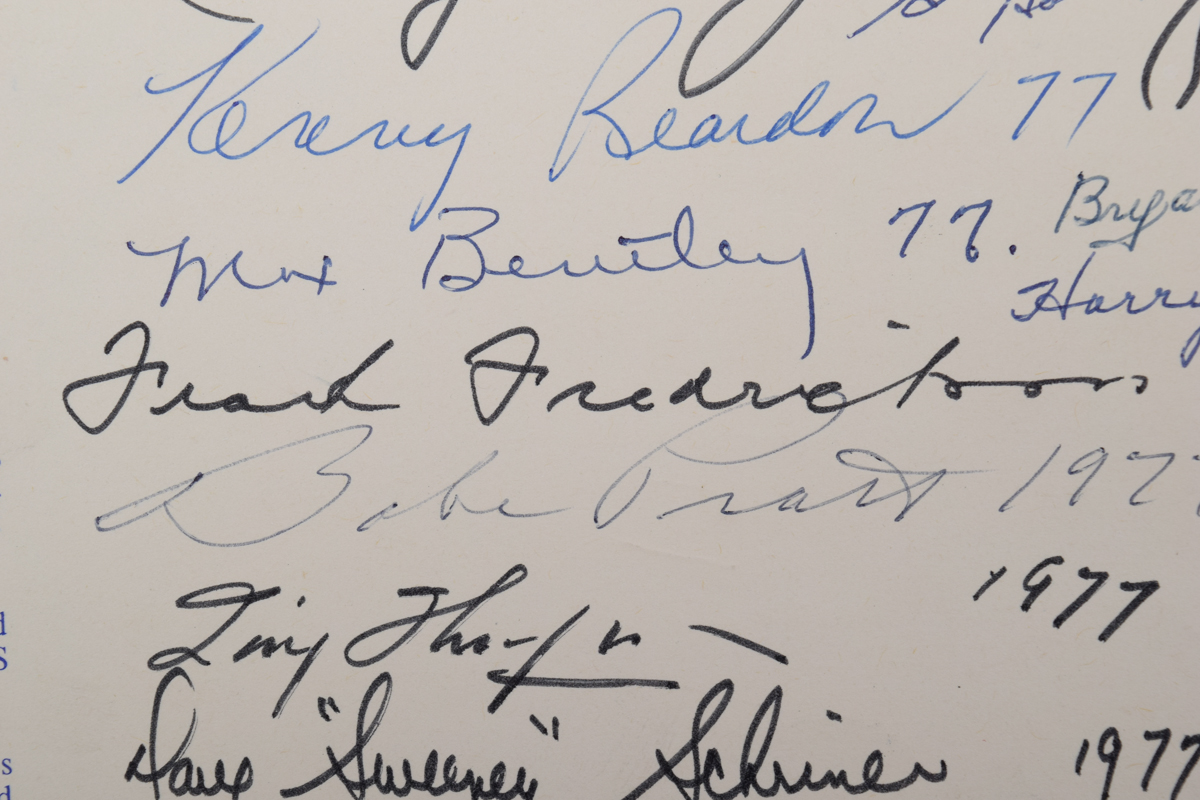 Kenny Reardon 77
Max Bentley 77.
Brya
Harry
Frank Fredrickson
Babe Pratt 197
Tiny Thompson 1977
Dave "Sweeney" Schriner 1977